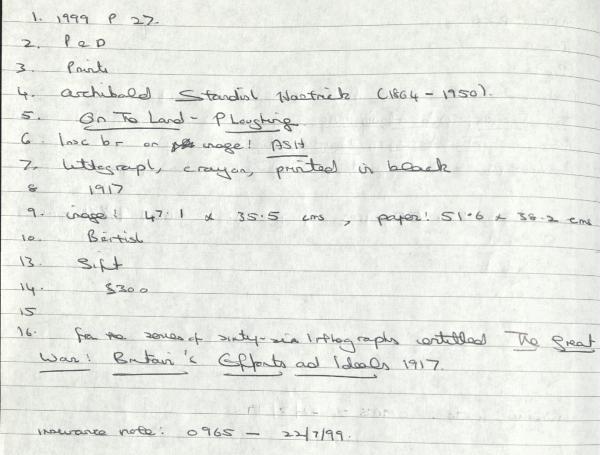 1. 1999 P 27.
2. P & D
3. Prints
4. Archibald Standish Hartrick (1864 - 1950).
5. On The Land - Ploughing
6 Insc br on image: ASH
7. lithograph, crayon, printed in black
8 1917
9. image: 47.1 x 35.5 cms, paper: 51.6 x 38.2 cms
10. British
13. Gift
14. $300
15
16. from the series of sixty-six lithographs entitled The Great
War: Britain's Efforts and Ideals 1917.
insurance note: 0965 - 22/7/99.